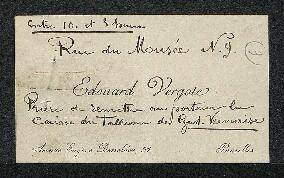 Entre 10. et 3 heures
Rue du Musée N. 9.
Edouard Vergote
Prière de remettre au porteur la
Caisse du tableau de Gust. Vanaise
Avenue Eugène Demolder 
Bruxelles